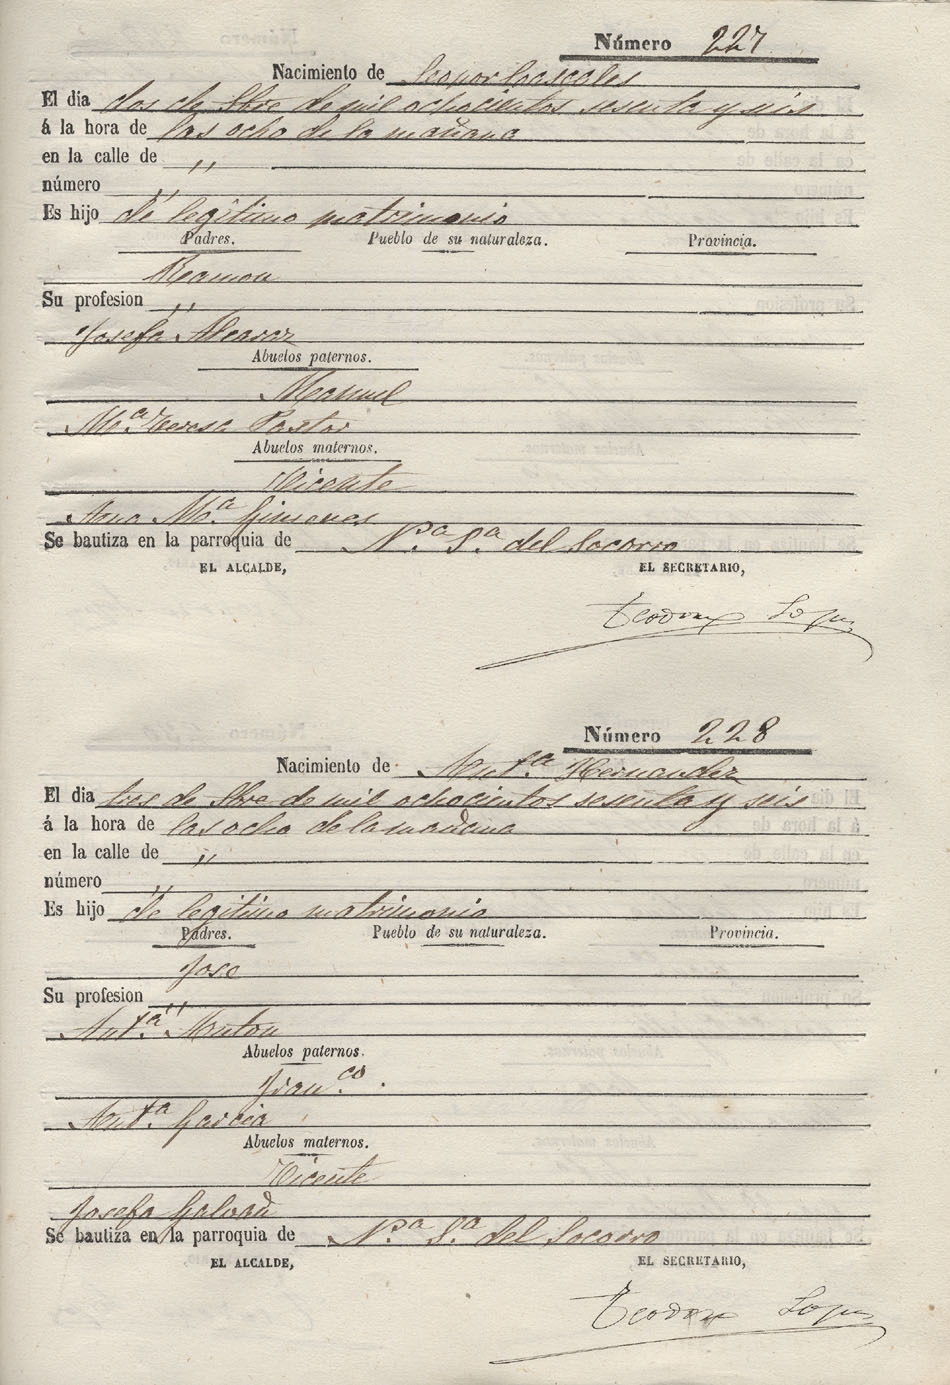 Número 227
Nacimiento de Leonor Cascales
El dia dos de 8bre de mil ochocientos sesenta y seis
á la hora de las ocho de la mañana
en la calle de ,,
número ,,
Es hijo de legitimo matrimonio
Padres. Pueblo de su naturaleza. Provincia.
Ramon
Su profesion ,,
Josefa Alcaraz
Abuelos paternos.
Manuel
Mª. Teresa Pastor
Abuelos maternos.
Vicente
Ana Mª. Gimenes
Se bautiza en la parroquia de Nª. Sª. del Socorro
EL ALCALDE, EL SECRETARIO,
Teodoro Lopez
Número 228
Nacimiento de Antª. Hernandez
El dia tres de 8bre de mil ochocientos sesenta y seis
á la hora de las ocho de la mañana
en la calle de ,,
número ,,
Es hijo de legitimo matrimonio
Padres. Pueblo de su naturaleza. Provincia.
Jose
Su profesion ,,
Antª. Anton
Abuelos paternos.
Franco.
Antª. Garcia
Abuelos maternos.
Vicente
Josefa Galvañ
Se bautiza en la parroquia de Nª. Sª. del Socorro
EL ALCALDE, EL SECRETARIO,
Teodoro Lopez